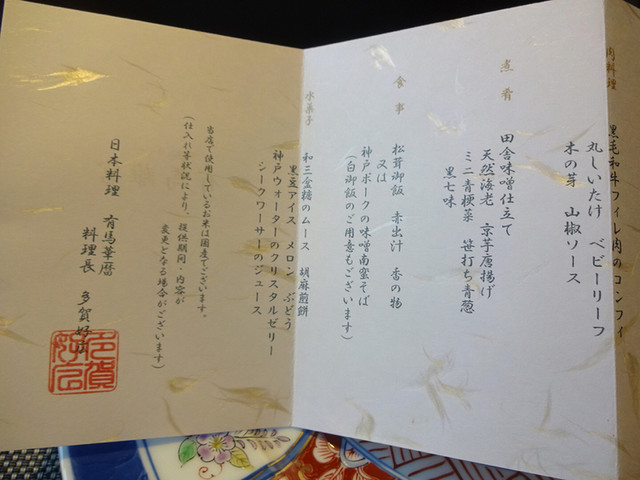 肉料理
黒毛和牛フィレ肉のコンフィ
丸しいたけ　ベビーリーフ
木の芽　山椒ソース
煮肴
田舎味噌仕立て
天然海老　京芋唐揚げ
ミニ青梗菜　笹打ち青葱
黒七味
食事
松茸御飯　赤出汁　香の物
又は
神戸ポークの味噌南蛮そば
(白御飯のご用意もございます)
水菓子
和三盆糖のムース　胡麻煎餅
黒豆アイス　メロン　ぶどう
神戸ウォーターのクリスタルゼリー
シークワーサーのジュース
当店で使用しているお米は国産でございます。
(仕入れ等状況により、提供期間・内容が
変更となる場合がございます)
日本料理　有馬華暦
料理長　多賀好